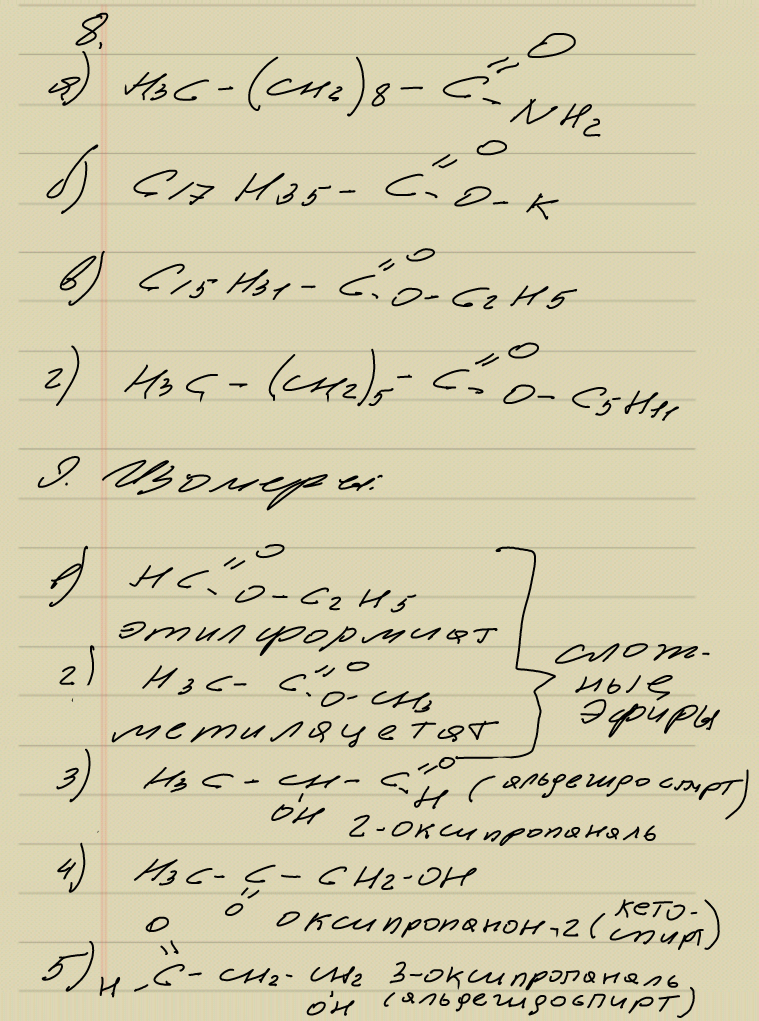 8.
а) H3C-(CH2)8-C=O NH2
б) C17H35-C=O O-K
в) C15H31-C=O O-C2H5
г) H3C-(CH2)5-C=O O-C5H11
9. Изомеры:
1) HC=O O-C2H5
этилформиат
2) H3C-C=O O-CH3
метилацетат
сложные
эфиры
3) H3C-CH-C=O H (альдегидоспирт)
OH 2-оксипропаналь
4) H3C-C-CH2-OH
O оксипропанон-2 (кето-
спирт)
O
5) H-C-CH2-CH2 3-оксипропаналь
OH (альдегидоспирт)